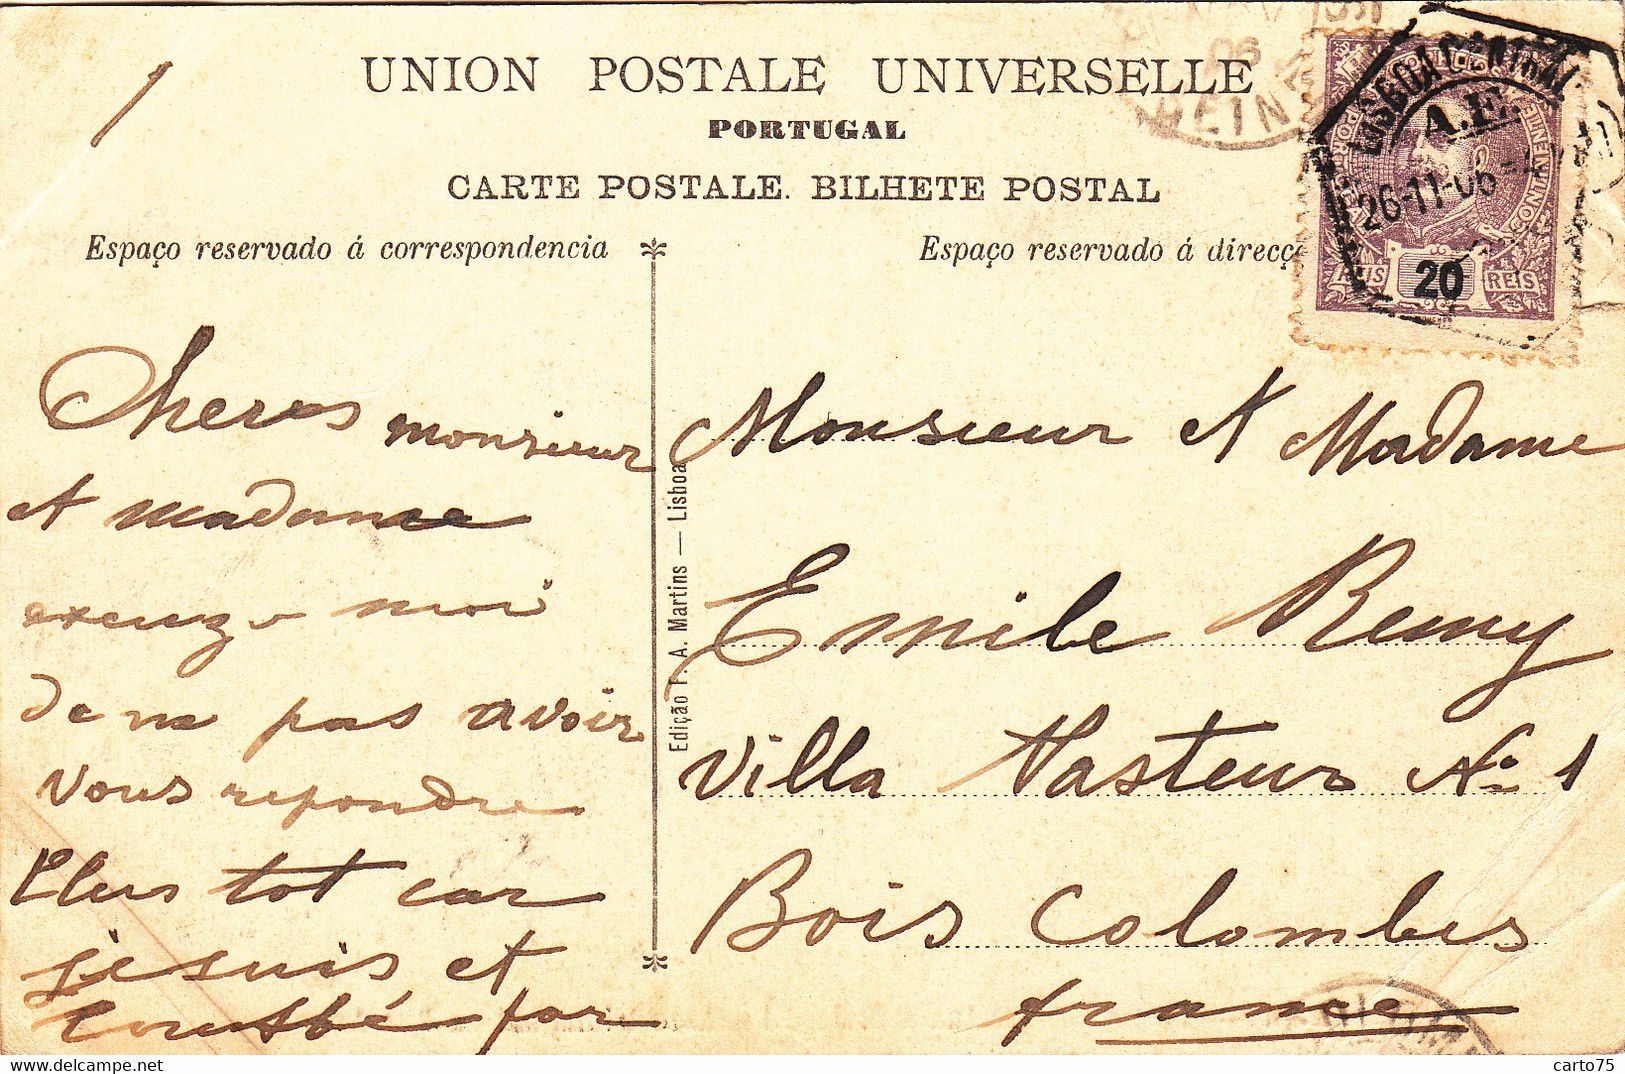 UNION POSTALE UNIVERSELLE
PORTUGAL
CARTE POSTALE. BILHETE POSTAL
Espaço reservado á correspondencia
Espaço reservado á direcç
LISBOA CENTRAL
A.E.
26-11-06
CONTINENTE
REIS 20 REIS
06
Cheres monsieur
et madame
excuze moi
de ne pas avoir
vous repondre
Plus tot car
je suis et
tombé par
Edição F. A. Martins — Lisboa
Monsieur et Madame
Emile Remy
Villa Pasteur No 1
Bois Colombes
france
delcampe.net
carto75